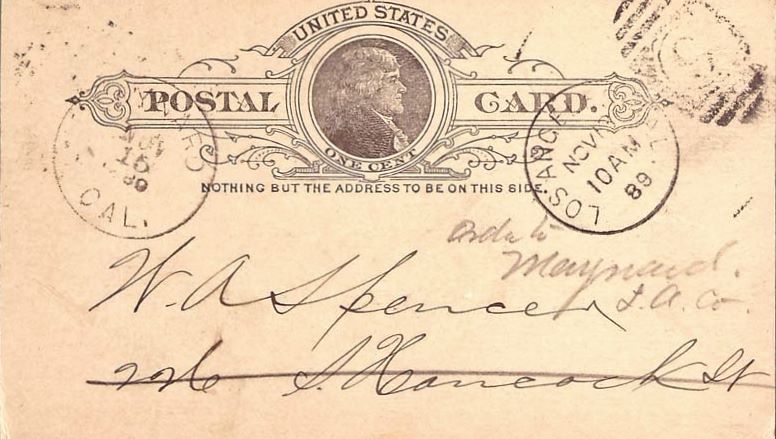 UNITED STATES
POSTAL CARD.
ONE CENT
NOTHING BUT THE ADDRESS TO BE ON THIS SIDE.
CAL.
LOS ANGE
NOV
10 AM
89
Maynard.
L.A. Co.
W. A Spencer
S. Hancock St